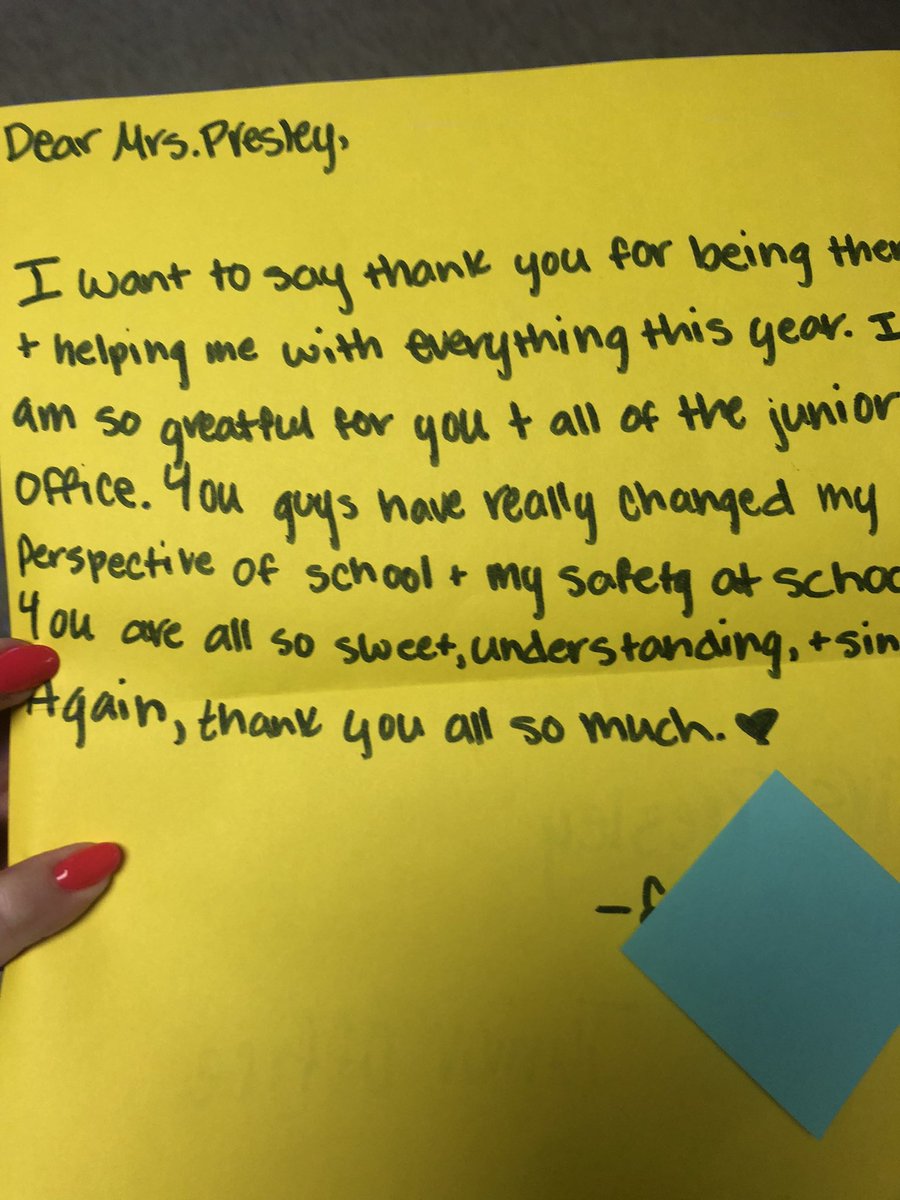 Dear Mrs. Presley,
I want to say thank you for being
+ helping me with everything this year. I
am so greatful for you + all of the junior
office. You guys have really changed my
perspective of school + my safety at
You are all so sweet, understanding, +
Again, thank you all so much. ♥